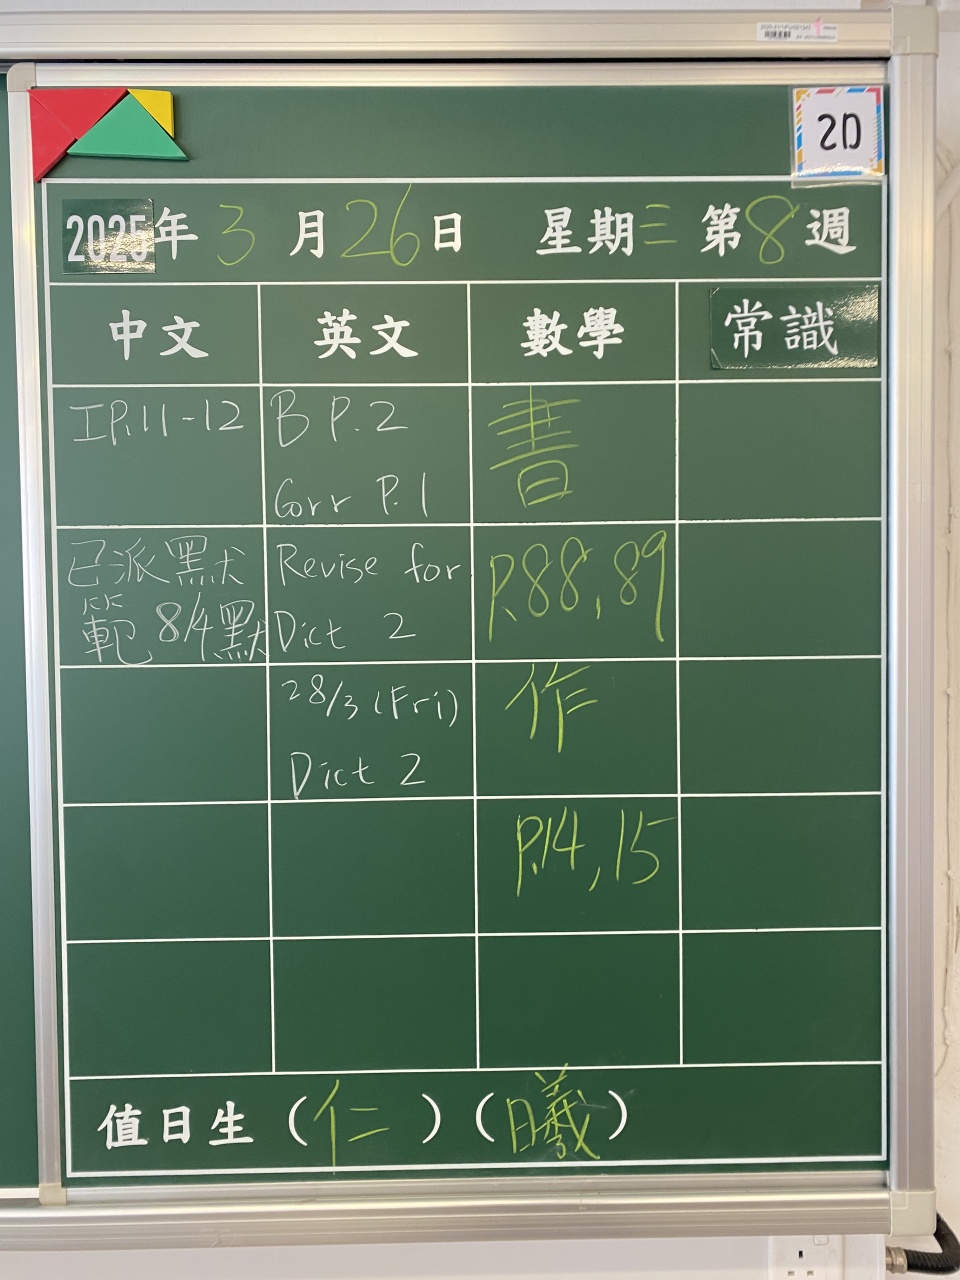 2D
2025年3月26日 星期三 第8週
中文 英文 數學 常識
IP.11-12
B P.2
Corr P.1
書
已派默
範 8/4默
Revise for
Dict 2
P.88,89
28/3 (Fri)
Dict 2
作
P.14,15
值日生（仁）（曦）